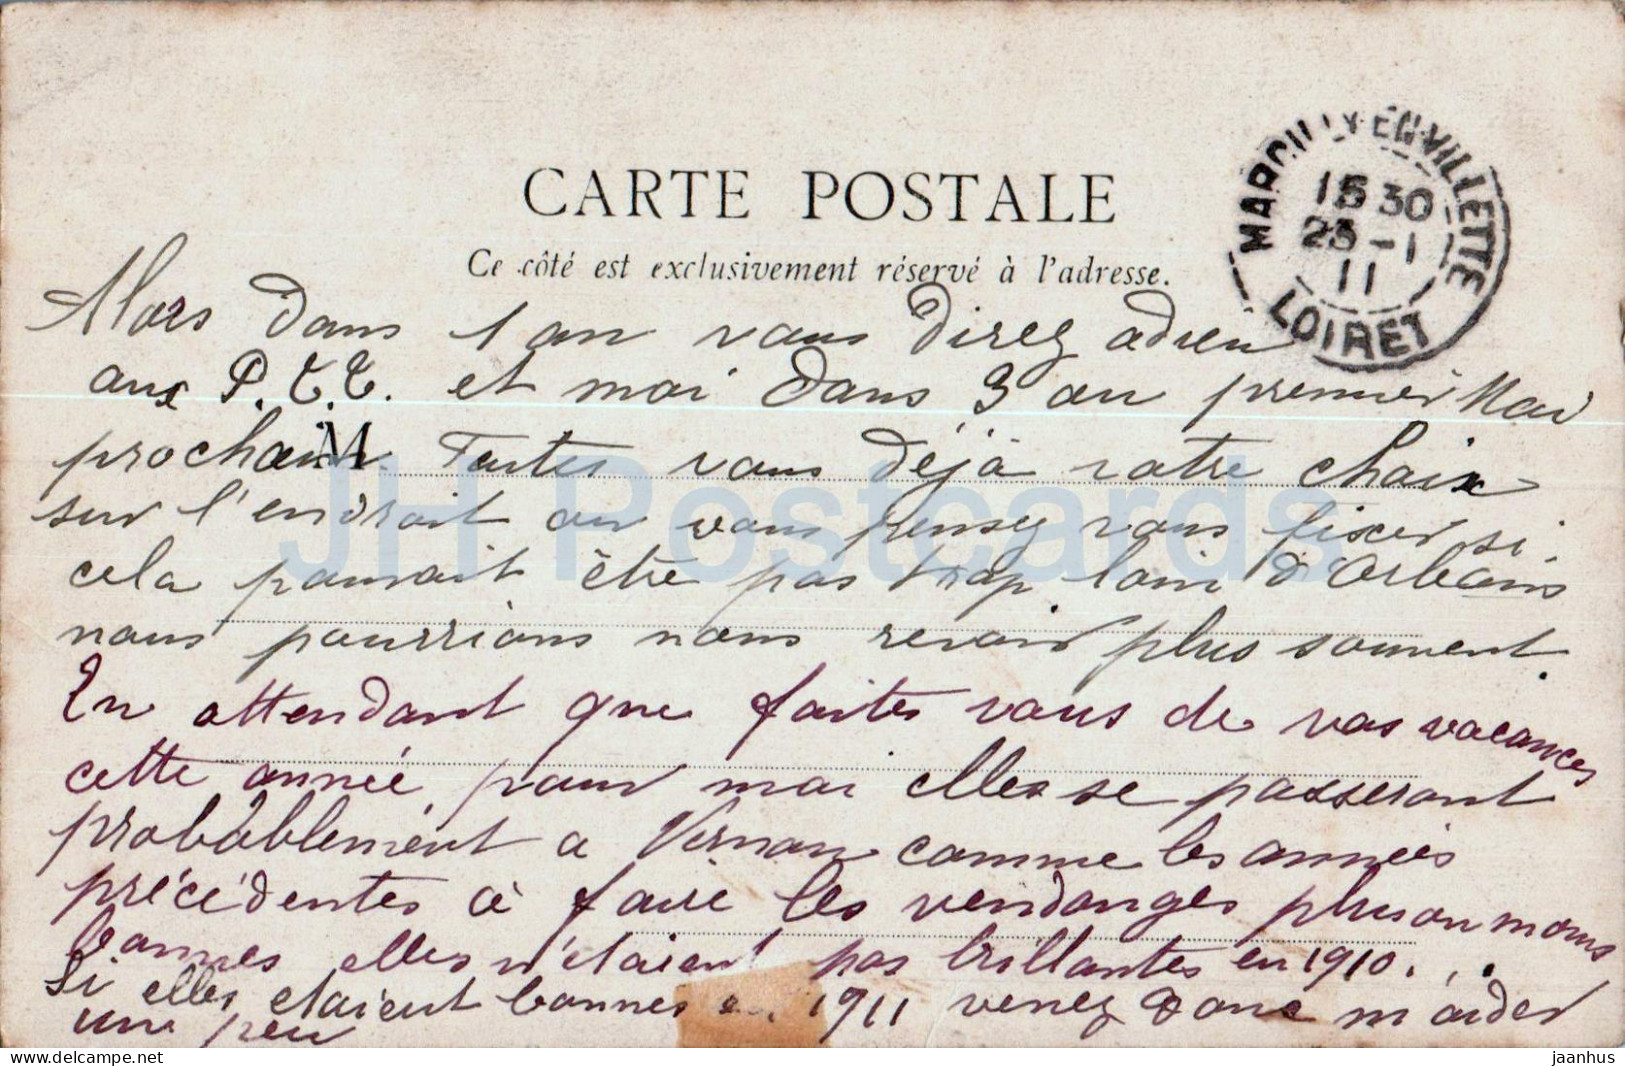 CARTE POSTALE
Ce côté est exclusivement réservé à l'adresse.
MARCILLY-EN-VILLETTE
15 30
23 -1
11
LOIRET
Alors dans 1 an vous direz adieu
aux P.T.T. et moi dans 3 au premier Mai
prochain. Faites vous déjà votre choix
sur l'endroit ou vous pensez vous fixer si
cela pouvait être pas trop loin d'Orléans
nous pourrions nous revoir plus souvent.
En attendant que faites vous de vos vacances
cette année pour moi elles se passeront
probablement a Vernou comme les années
précédentes à faire les vendanges plus ou moins
bonnes elles n'étaient pas brillantes en 1910.
Si elles etaient bonnes en 1911 venez donc m'aider
une peu
M
JH Postcards
delcampe.net
jaanhus